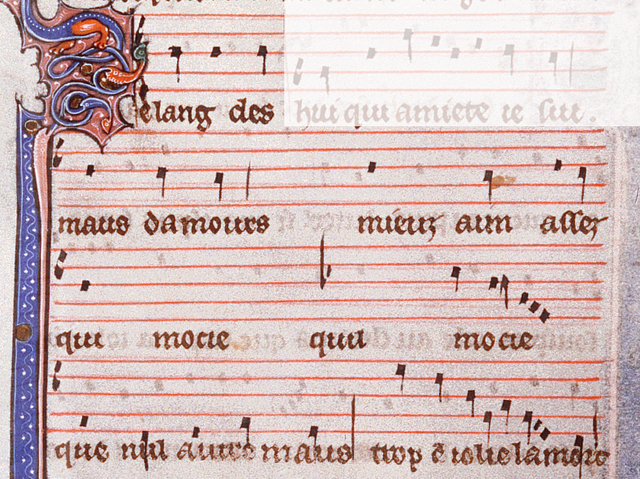 elang des hui qui amiete ie sui.
maus damours mieuz aim assez
qui mocie quil mocie
que nul autre maus trop e iolie la mort